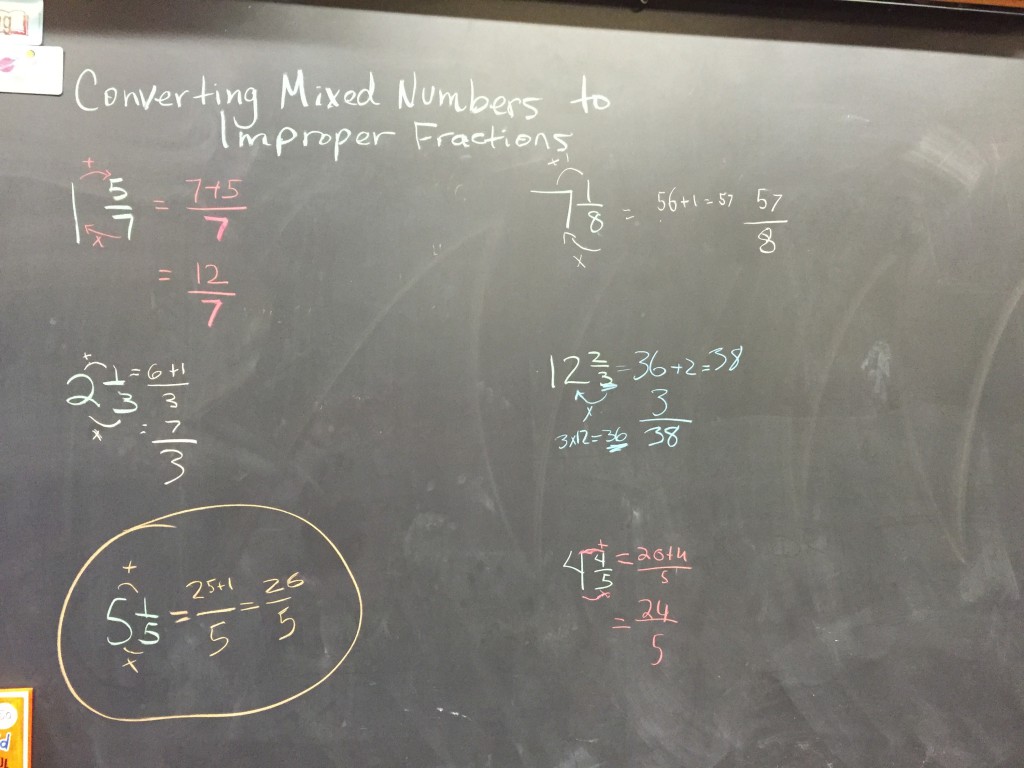 Converting Mixed Numbers to
Improper Fractions
+
1 5/7 = 7+5/7
x
= 12/7
+
7 1/8 = 56+1=57 57/8
x
+
2 1/3 = 6+1/3
x
= 7/3
12 2/3 = 36+2=38
x
3x12=36
3/38
+
5 1/5 = 25+1/5 = 26/5
x
+
4 4/5 = 20+4/5
x
= 24/5
g
d